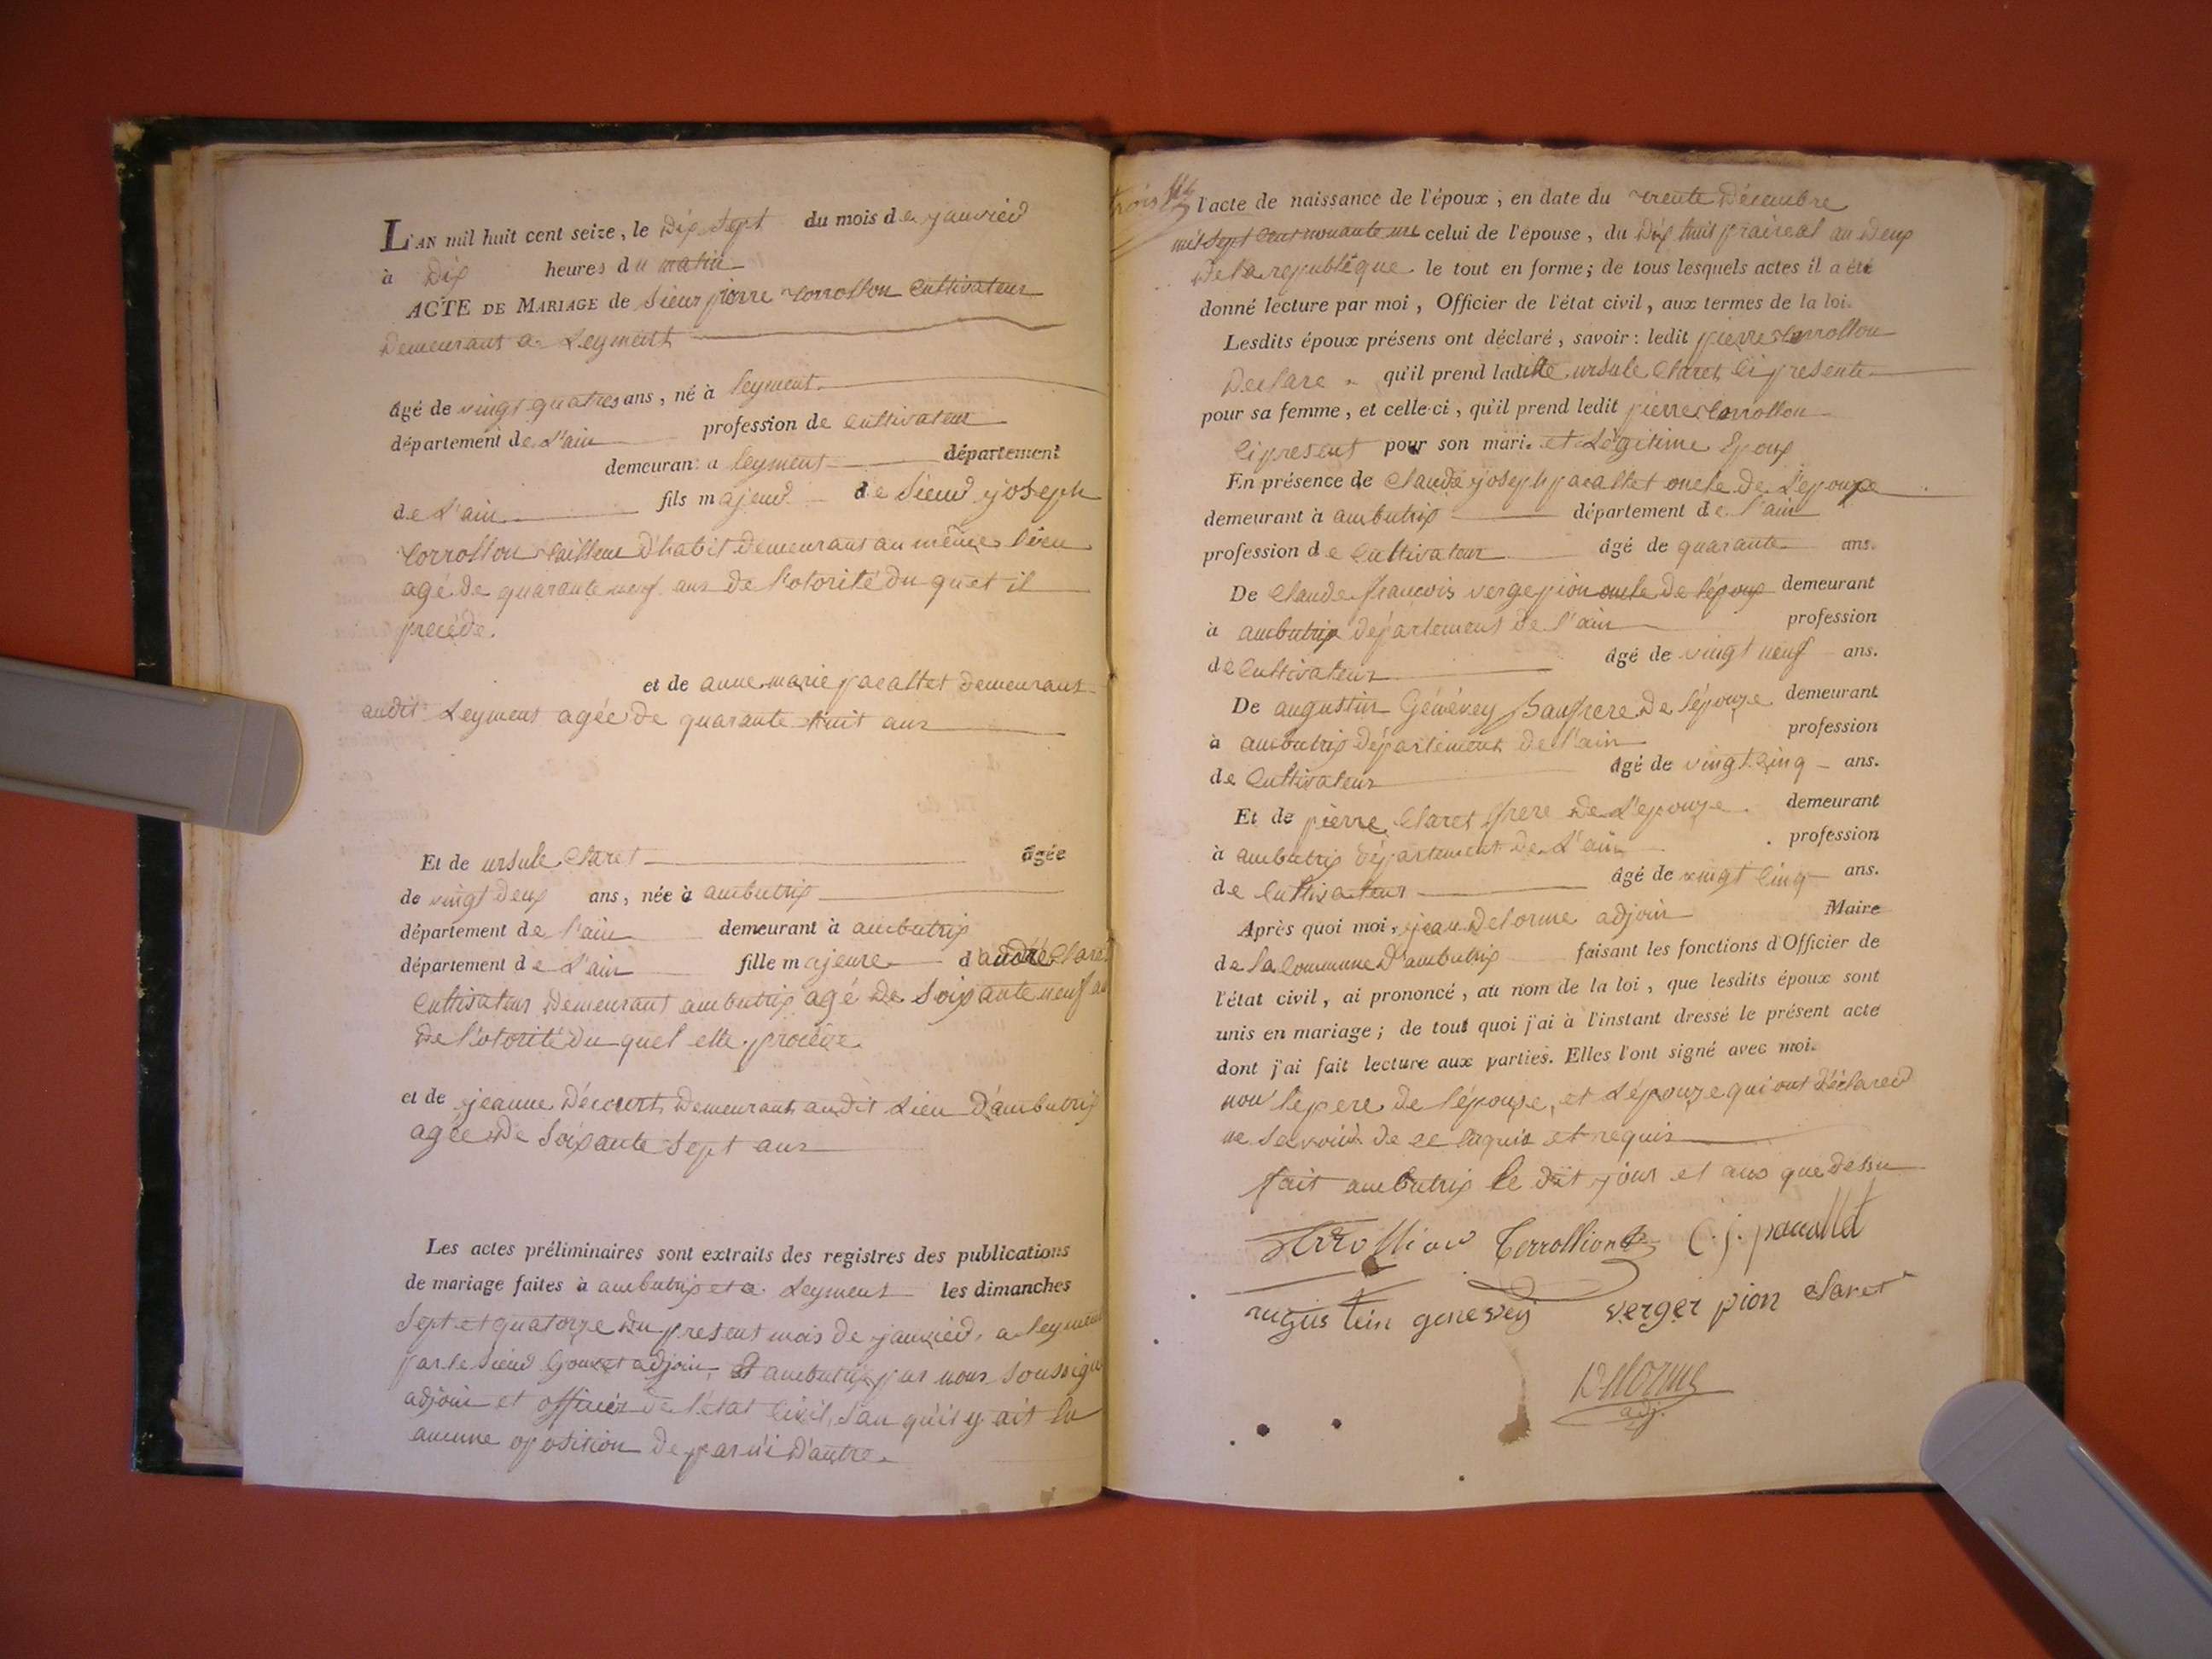 L'AN mil huit cent seize, le Dix Sept du mois de janvier
à Dix heures du matin
ACTE DE MARIAGE de Sieur pierre Torrollon Cultivateur
Demeurant a Leyment
âgé de vingt quatres ans, né à leyment
département de L'ain profession de cultivateur
demeurant a leyment département
de L'ain fils majeur de Sieur joseph
Torrollon tailleur D'habit demeurant au même lieu
agé de quarante neuf ans de l'otorité du quel il
procéde.
et de anne marie pacallet demeurant
audit Leyment agée de quarante huit ans
Et de ursule Claret âgée
de vingt deux ans, née à ambutrix
département de l'ain demeurant à ambutrix
département de L'ain fille majeure d'andré Claret
Cultivateur Demeurant ambutrix agé de Soixante neuf an
De l'otorité du quel elle procéde
et de jeanne Décourt Demeurant audit Lieu D'ambutrix
agée De Soixante Sept ans
Les actes préliminaires sont extraits des registres des publications
de mariage faites à ambutrix et a Leyment les dimanches
Sept et quatorze Du present mois de janvier, a leyment
par le Sieur Gouret adjoin, et ambutrix par nous Soussigné
adjoin et officier de l'état Civil, San qu'il y ait Eu
aucune oposition de par n'i D'autre.
trois
l'acte de naissance de l'époux ; en date du trente Décembre
mil Sept Cent nonante une celui de l'épouse, du Dix huit prairéal an Deux
De la republique le tout en forme ; de tous lesquels actes il a été
donné lecture par moi, Officier de l'état civil, aux termes de la loi.
Lesdits époux présens ont déclaré, savoir : ledit pierre Torrollon
Declare qu'il prend ladite ursule Claret Ci presente
pour sa femme, et celle-ci, qu'il prend ledit pierre Torrollon
Ci present pour son mari. et Légitime Epoux
En présence de Claude joseph pacallet oncle de L'epouze
demeurant à ambutrix département de l'ain
profession de Cultivateur âgé de quarante ans.
De Claude françois vergepion oncle de l'époux demeurant
à ambutrix département de l'ain profession
de Cultivateur âgé de vingt neuf ans.
De augustin Génévey Baufrere De l'épouze demeurant
à ambutrix département de l'ain profession
de Cultivateur âgé de vingt Cinq ans.
Et de pierre Claret frere De L'epouze demeurant
à ambutrix département de L'ain profession
de Cultivateur âgé de vingt Cinq ans.
Après quoi moi, jean Delorme adjoin Maire
de la Commune D'ambutrix faisant les fonctions d'Officier de
l'état civil, ai prononcé, au nom de la loi, que lesdits époux sont
unis en mariage ; de tout quoi j'ai à l'instant dressé le présent acte
dont j'ai fait lecture aux parties. Elles l'ont signé avec moi.
non le pere de l'épouse, et L'épouze qui ont Déclarer
ne Savoir de ce Enquis et requis
fait ambutrix le dit jour et ans que dessu
Terrollion Terrollion C. j. pacallet
augustein genevey verger pion claret
Delorme
adj.